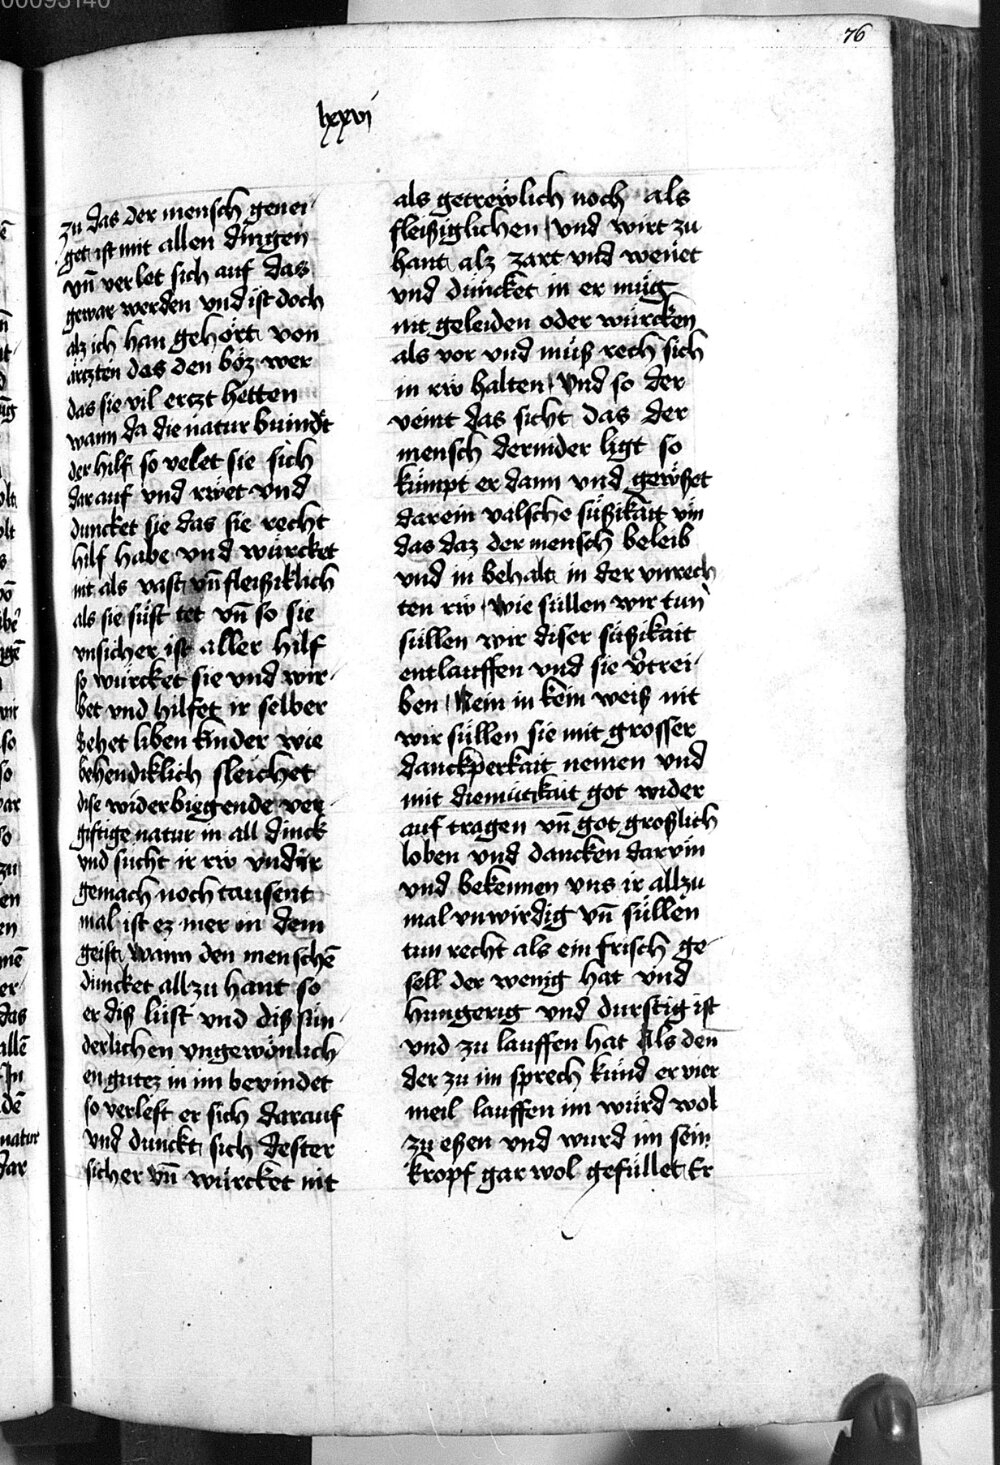 76
lxxvi
zu das der mensch genei-
get ist mit allen dingen
vñ verlet sich auf das
gewar werden vnd ist doch
alz ich han gehört von
ärtzten das den böz wer
das sie vil erczt hetten
wann da die natur buindt
der hilf so velet sie sich
dar auf vnd rwet vnd
duncket sie das sie recht
hilf habe vnd würcket
nit als vast vñ fleißiklich
als sie süst tet vñ so sie
vnsicher ist aller hilf
so würcket sie vnd wir-
bet vnd hilfet ir selber
Sehet liben kinder wie
behendiklich sleichet
dise widerbiegende ver-
giftige natur in all dinck
vnd sucht ir rw vnd ir
gemach noch tausent
mal ist ez mer in dem
geist Wann den menschē
duncket allzu hant so
er diß lüst vnd diß sün-
derlichen vngewönlich
en gutez in im bevindet
so verleft er sich darauf
vnd dunckt sich dester
sicher vñ würcket nit
als getrewlich noch als
fleißiglichen vnd wirt zu
hant alz zart vnd weuet
vnd duncket in er müg
nit geleiden oder würcken
als vor vnd müß rech sich
in rw halten Vnd so der
veint das sicht das der
mensch dernider ligt so
kümpt er dann vnd gewßet
darein valsche süßikait vm
das daz der mensch beleib
vnd in behalt in der vnrech
ten rw Wie süllen wir tun
süllen wir diser süßikait
entlauffen vnd sie v̓trei-
ben Nein in kein weiß nit
wir süllen sie mit grosser
danckperkait nemen vnd
mit diemütikait got wider
auf tragen vñ got großlich
loben vnd dancken darvm
vnd bekennen vns ir allzu
mal vnwirdig vñ süllen
tun recht als ein frisch ge-
sell der wenig hat vnd
hungerig vnd durstig ist
vnd zu lauffen hat Als den
der zu im sprech künd er vier
meil lauffen im würd wol
zu eßen vnd wurd im sein
kropf gar wol gefüllet Er